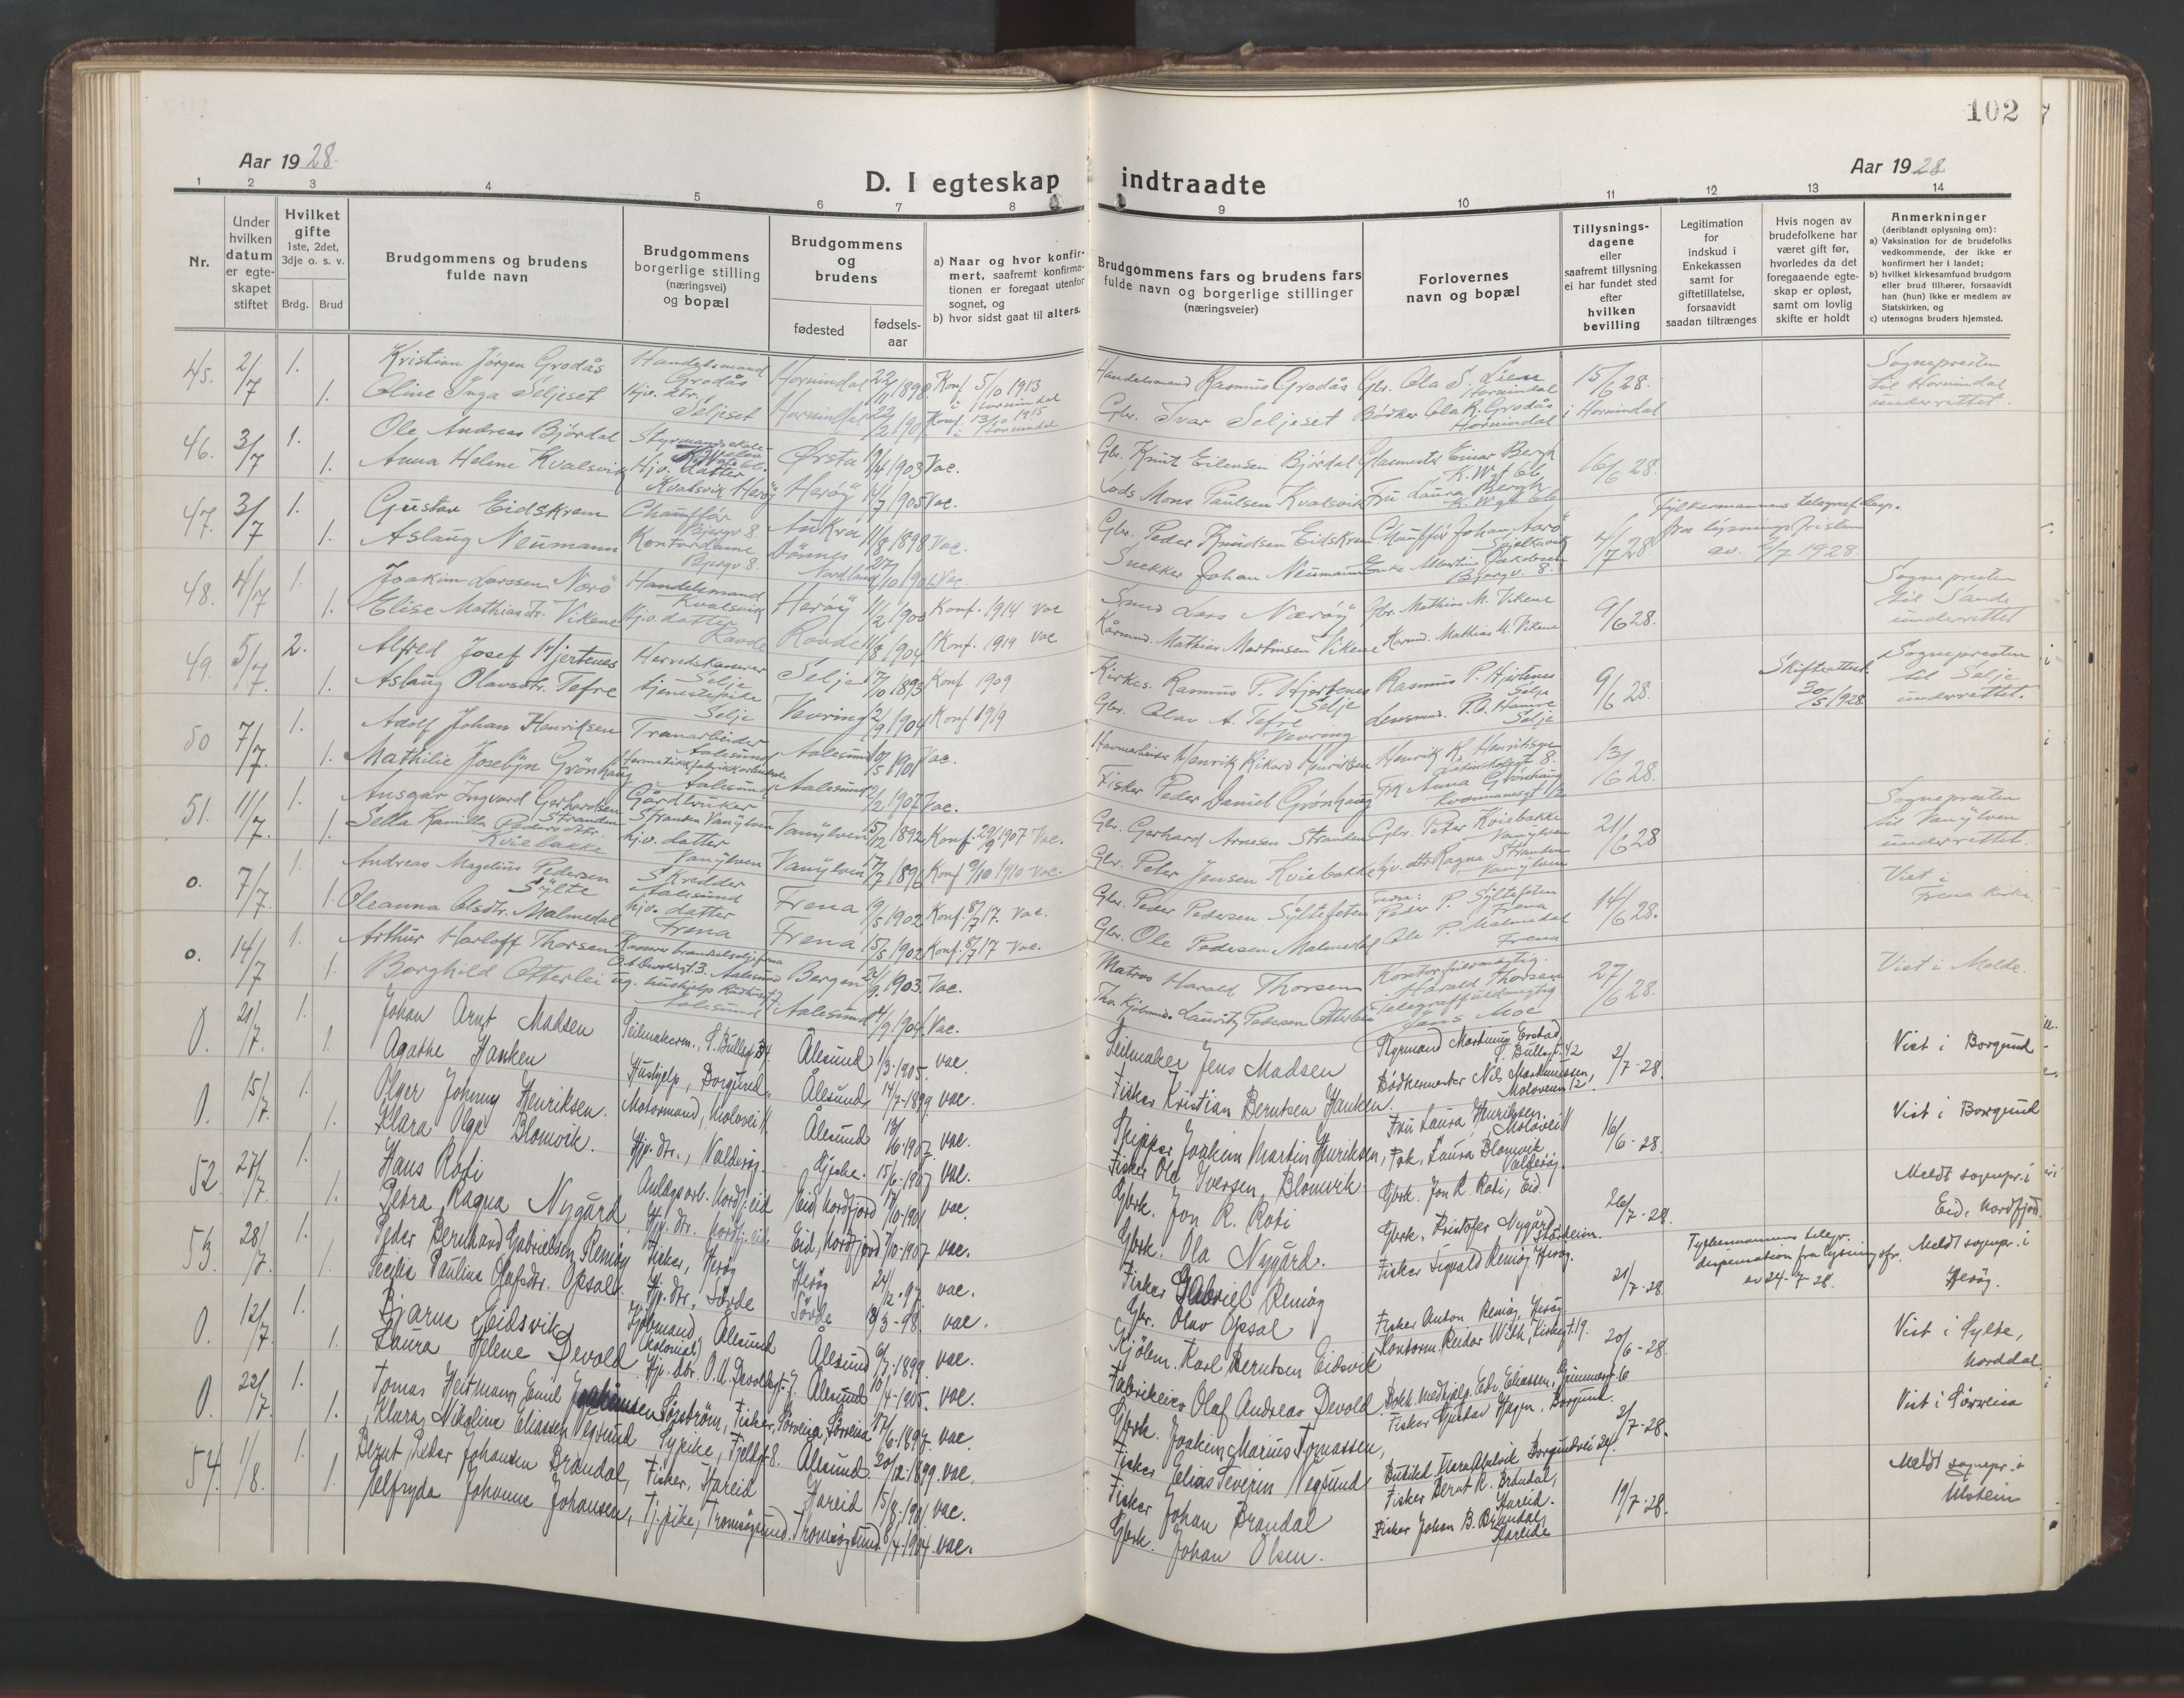 102
Aar 1928.
D. I egteskap
indtraadte
Aar 1928
1 2 3 4 5 6 7 8 9 10 11 12 13 14
Nr.
Under hvilken datum er egteskapet stiftet
Hvilket gifte
1ste, 2det, 3dje o. s. v.
Brdg. Brud
Brudgommens og brudens fulde navn
Brudgommens borgerlige stilling (næringsvei) og bopæl
Brudgommens og brudens
fødested
fødselsaar
a) Naar og hvor konfirmert, saafremt konfirmationen er foregaat utenfor sognet, og
b) hvor sidst gaat til alters.
Brudgommens fars og brudens fars fulde navn og borgerlige stillinger (næringsveier)
Forlovernes navn og bopæl
Tillysningsdagene eller saafremt tillysning ei har fundet sted efter hvilken bevilling
Legitimation for indskud i Enkekassen samt for giftetillatelse, forsaavidt saadan tiltrænges
Hvis nogen av brudefolkene har været gift før, hvorledes da det foregaaende egteskap er opløst, samt om lovlig skifte er holdt
Anmerkninger
(deriblandt oplysning om):
a) Vaksination for de brudefolks vedkommende, der ikke er konfirmert her i landet;
b) hvilket kirkesamfund brudgom eller brud tilhører, forsaavidt han (hun) ikke er medlem av Statskirken, og
c) utensogns bruders hjemsted.
45. 2/7 1. Kristian Jørgen Grodås Handelsmand Grodås Hornindal 22/11 1898 Konf. 5/10 1913 i Hornindal Handelsmand Rasmus Grodås Gbr. Ola S. Lien Hornindal 15/6 28. Sognepresten til Hornindal underrettet.
1. Oline Inga Seljeset Hjv. dtr. Seljeset Hornindal Konf. 13/10 1915 i Hornindal Gbr. Ivar Seljeset Bödker Ola R. Grodås Hornindal i Hornindal
46. 3/7 1. Ole Andreas Björdal Ørsta 19/4 1903 Vac. Gbr. Knut Eilensen Bjórdal Glasmester Einar Bergh K. Wgt 6b 16/6 28.
1. Anna Helene Kvalsvik Hjv. datter Kvalsvik Heröÿ Heröÿ 14/7 1905 Vac. Lods Mons Paulsen Kvalsvik Fru Laura Bergh K. Wgt 6b
47. 3/7 1. Gustav Eidskrem Chauffør Bjergv 8. Aukra 11/8 1898 Vac. Gbr. Peder Knudsen Eidskrem Chauffør Johan Aarö Spjelkavik 4/7 28 Fylkesmannens telegraf. disp. fra lysningsfristen av 2/7 1928.
1. Aslaug Neumann Kontordame Bjergv. 8. Dönnes Nordland 27/10 1906 Vac. Snekker Johan Neumann Enke Albertine Jakobsen Bjergv. 8.
48. 4/7 1. Joakim Larssen Nærö Handelsmand Kvalsvik Heröÿ 11/2 1900 Konf. 1914 vac Smed Lars Næröÿ Gbr. Mathias M. Vikene 9/6 28. Sognepresten til Sande underrettet
1. Elise Mathiasdtr. Vikene Hjv. datter Rovde Rovde 11/8 1904 Konf. 1919 vac Mathias Martinsen Vikene Mathias M. Vikene
49. 5/7. 2. Alfred Josef Hjertenes Herredskasserer Selje Selje 17/10 1893 Konf 1909 Kirkes. Rasmus P. Hjertenes Selje Rasmus P. Hjertenes Selje 9/6 28. Skifteattest. 30/5 1928. Sognepresten til Selje underrettet.
1. Aslaug Olavsdtr. Tefre tjenestepike Selje Vevring 2/9 1904 Konf 1919 Gbr. Olav A. Tefre Vevring Lensmd. P. O. Hamre Selje
50 7/7. 1. Adolf Johan Henriksen Tranarbeider Aalesund Aalesund 10/5 1901 Vac. Havnearbeider Henrik Rikard Henriksen Henrik R. Henriksen 13/6 28.
1. Mathilie Josebÿn Grönhaug Hermetikkfabrikkarbeiderske Aalesund Aalesund 1/2 1907 Vac. Fisker Peder Daniel Grönhaug Fru Anna Grønhaug
51. 11/7. 1. Ansgar Ingvard Gerhardsen Stranden Gårdbruker Stranden Vanÿlven Vanÿlven 5/12 1892 Konf. 29/9 1907 Vac. Gbr. Gerhard Arnesen Stranden Gbr. Peter Kviebakke Vanÿlven 21/6 28 Sognepresten til Vanÿlven underrettet.
1. Sella Kamilla Pedersdtr. Kviebakke hjv. datter Vanÿlven Vanÿlven 17/7 1896 Konf 9/10 1910 Vac. Gbr. Peter Jensen Kviebakke hjv. dtr Ragna Stranden Vanÿlven
o. 7/7. 1. Andreas Magelius Pedersen Sÿlte Skredder Aalesund Frena 19/5 1902 Konf. 8/7 17. Vac. Gbr. Peder Pedersen Sÿltefeten Peder P. Sÿltefeten Frena 14/6 28. Viet i Frena kirke.
1. Oleanna Olsdtr. Malmedal hjv. datter Frena Frena 15/5 1902 Konf. 8/7 17 Vac. Gbr. Ole Pedersen Malmedal Ole P. Malmedal Frena
o. 14/7 1. Arthur Harloff Thorsen O. A. Devoldsgt. 3. Aalesund Bergen 1903. Vac. Matros Harald Thorsen Kontorfuldmægtig Harald Thorsen 27/6 28. Viet i Molde.
1. Borghild Otterlei ug. hushjelp Aalesund Aalesund 1904 Vac. Lauritz Pedersen Otterlei Telegraffuldmægtig Jens Moe
0. 21/7. 1. Johan Arnt Madsen Seilmakerm., S. Bullsgt 34 Ålesund 1/3 1905. vac. Seilmaker Jens Madsen Styrmand Martinus Erstad S. Bullsgt 42 2/7-28. Viet i Borgund
1. Agathe Hanken Hushjelp, Borgund Ålesund 14/7-1899. vac. Fisker Kristian Berntsen Hanken. Bödkermester Nils Markussen, Moloveien 12
0. 15/7. 1. Olger Johnny Henriksen. Motormand, Molovei 11. Ålesund 18/6 1907. vac. Skipper Joakim Martin Henriksen, Fru Laura Henriksen. Molovei 11 16/6-28 Viet i Borgund
1. Klara Olga Blomvik. Hjv. dtr., Valderøy. Gjerke. 15/6. 1907 vac. Fisker Ole Iversen Blomvik Frk. Laura Blomvik Valderøy.
52 27/7. 1. Hans Roti Anlægsarb. Nordfj.eid Eid Nordfjord 17/10-1901 vac. Gbrk. Jon R. Roti Gbrk. Jon R. Roti, Eid. 26/7-28. Meldt sognepr. i Eid, Nordfjord.
1. Petra Ragna Nygård. Hjv. dtr. Nordfj.eid. Eid, Nordfjord 7/10-1907 vac. Gbrk. Ola Nygård. Gbrk. Kristofer Nygård Stårheim.
53. 28/7. 1. Peder Bernhard Gabrielsen Remøy Fisker, Herøy Herøy 24/2-97 vac. Fisker Gabriel Remøy Fisker Sigvald Remøy, Herøy. 21/7-28 Fylkesmannens telegr. dispensation fra lysningsfr. av 24-7-28. Meldt sognepr. i Herøy.
1. Secilie Pauline Olafsdtr. Opsal. Hjv. dtr., Sørde Sørde 18/3-98. vac. Gbr. Olav Opsal Fisker Anton Remøy, Herøy
0. 12/7 1. Bjarne Eidsvik Kjøbmand, (kolonial) Ålesund Ålesund 6/7-1899. vac. Kjøbm. Karl Berntsen Eidsvik Kontorm. Reidar With, Kirkegt. 19. 20/6-28. Viet i Sylte, Norddal.
1. Laura Helene Devold Hjv. dtr. O. A. Devoldsgt. 7. Ålesund 10/4-1905. vac. Fabrikeier Olaf Andreas Devold Edv. Eliassen, Grimmergt 6
0. 22/7. 1. Tomas Heitmann Emil Joakimsen Søjström, Fisker, Sørveien, Sørreisa 17/6-1897. vac. Gbrk. Joakim Marius Tomassen, Fisker Gustav Hagen, Borgund. 2/7-28. Viet i Sørreisa
1. Klara Nikoline Eliassen Vegsund Sypike, Fjellgt 8. Ålesund 20/12-1899. vac. Fisker Elias Severin Vegsund Borgundvei 24.
54. 11/8. 1. Bernt Peder Johansen Brandal, Fisker, Hareid Hareid 15/8-1901 vac. Fisker Johan Brandal Fisker Bernt R. Brandal, Hareid. 19/7-28. Meldt sognepr. i Ulstein
1. Alfryda Johanne Johansen, Tj.pike, Tromsøysund. Tromsøysund. 8/4-1904. vac. Gbrk. Johan Olsen. Fisker Johan B. Brandal, Hareide